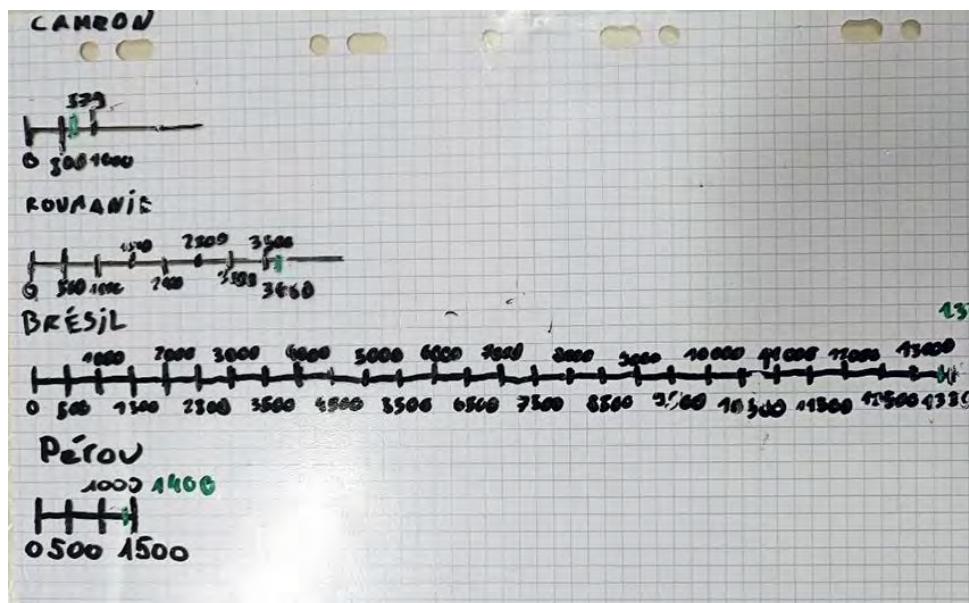 CAMRON
579
0 500 1000
ROUMANIE
1500 2500 3500
0 500 1000 2000 3460
BRÉSIL
13
1000 2000 3000 4000 5000 6000 7000 8000 9000 10000 11000 12000 13000
0 500 1500 2500 3500 4500 5500 6500 7500 8500 9500 10500 11500 12500
Pérou
1000 1400
0 500 1500